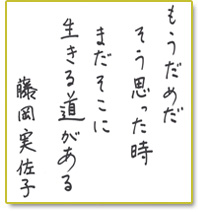 もうだめだ
そう思った時
まだそこに
生きる道がある
藤岡実佐子